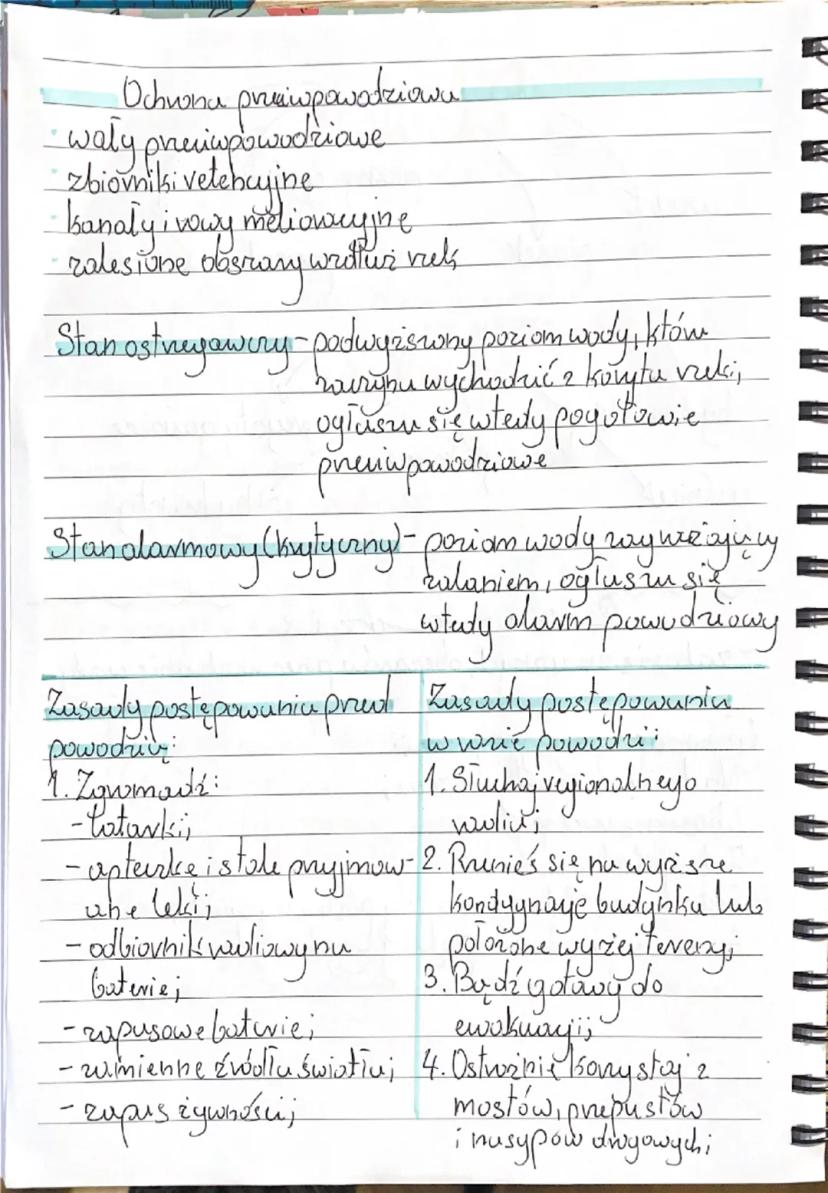 Ochrona przeciwpowodziowa
wały przeciwpowodziowe
zbiorniki retencyjne
kanały i rowy melioracyjne
zalesione obszary wzdłuż rzek
Stan ostrzegawczy - podwyższony poziom wody, który
zaczyna wychodzić z koryta rzeki,
ogłasza się wtedy pogotowie
przeciwpowodziowe
Stan alarmowy (krytyczny) - poziom wody zagrażający
zalaniem, ogłasza się
wtedy alarm powodziowy
Zasady postępowania przed
powodzią:
1. Zgromadź:
- latarki;
- apteczkę i stale przyjmow-
ane leki;
- odbiornik radiowy na
baterie;
- zapasowe baterie;
- zamienne źródła światła;
- zapas żywności;
Zasady postępowania
w razie powodzi:
1. Słuchaj regionalnego
radia;
2. Przenieś się na wyższe
kondygnacje budynku lub
położone wyżej tereny;
3. Bądź gotowy do
ewakuacji;
4. Ostrożnie korzystaj z
mostów, przepustów
i nasypów drogowych;